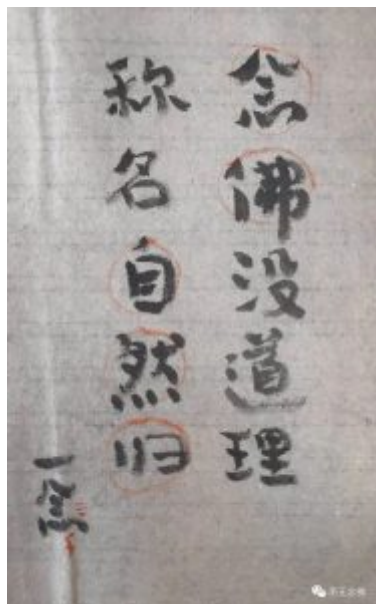 念佛没道理
称名自然归